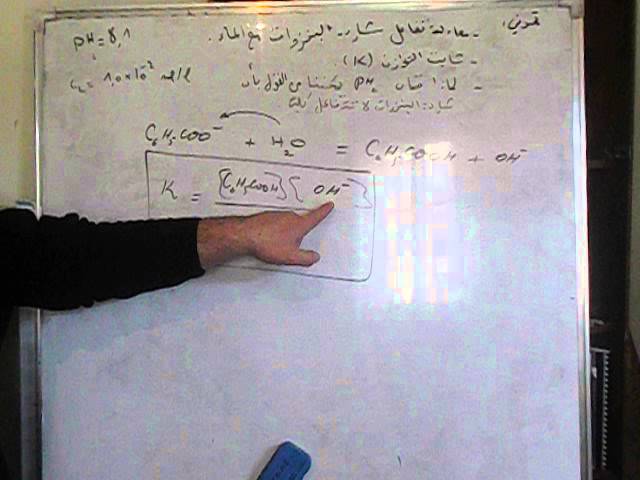 تمرين: - معادلة تفاعل شاردة البنزوات مع الماء.
- ثابت التوازن (K).
- لماذا قياس pH يمكننا من القول بأن
شاردة البنزوات لا تتفاعل كليا
pH = 8,1
C₂ = 1,0×10⁻² mol/l
C₆H₅COO⁻ + H₂O = C₆H₅COOH + OH⁻
K = [C₆H₅COOH][OH⁻]